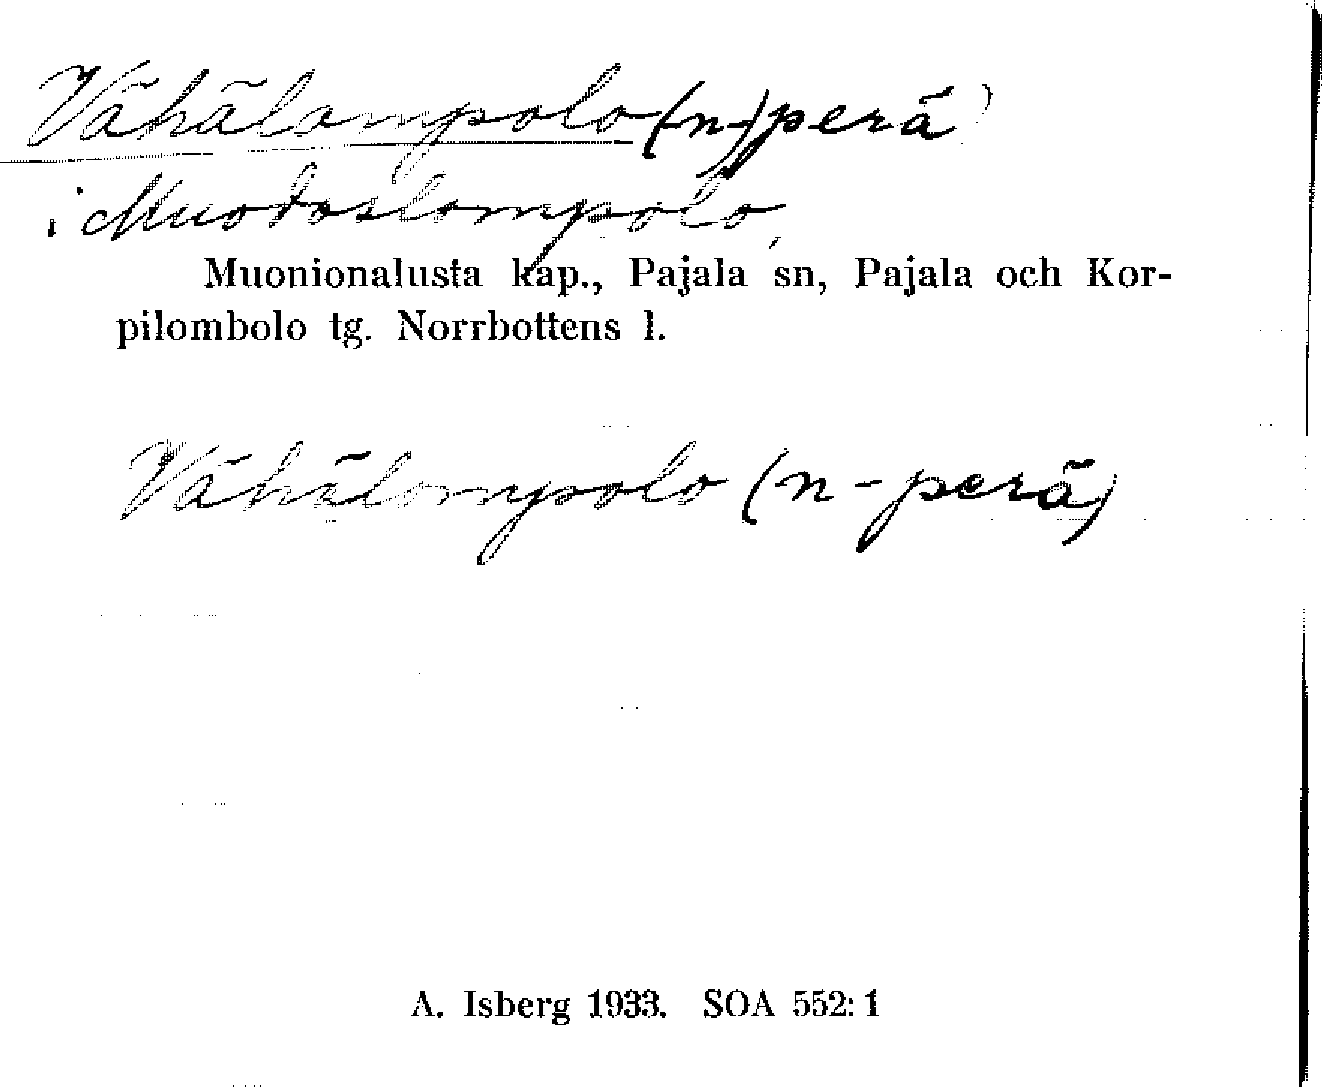 Vähälompolo (-n-)perä
i Muodoslompolo,
Muonionalusta kap., Pajala sn, Pajala och Kor-
pilombolo tg. Norrbottens l.
Vähälompolo (n-perä)
A. Isberg 1933. SOA 552:1